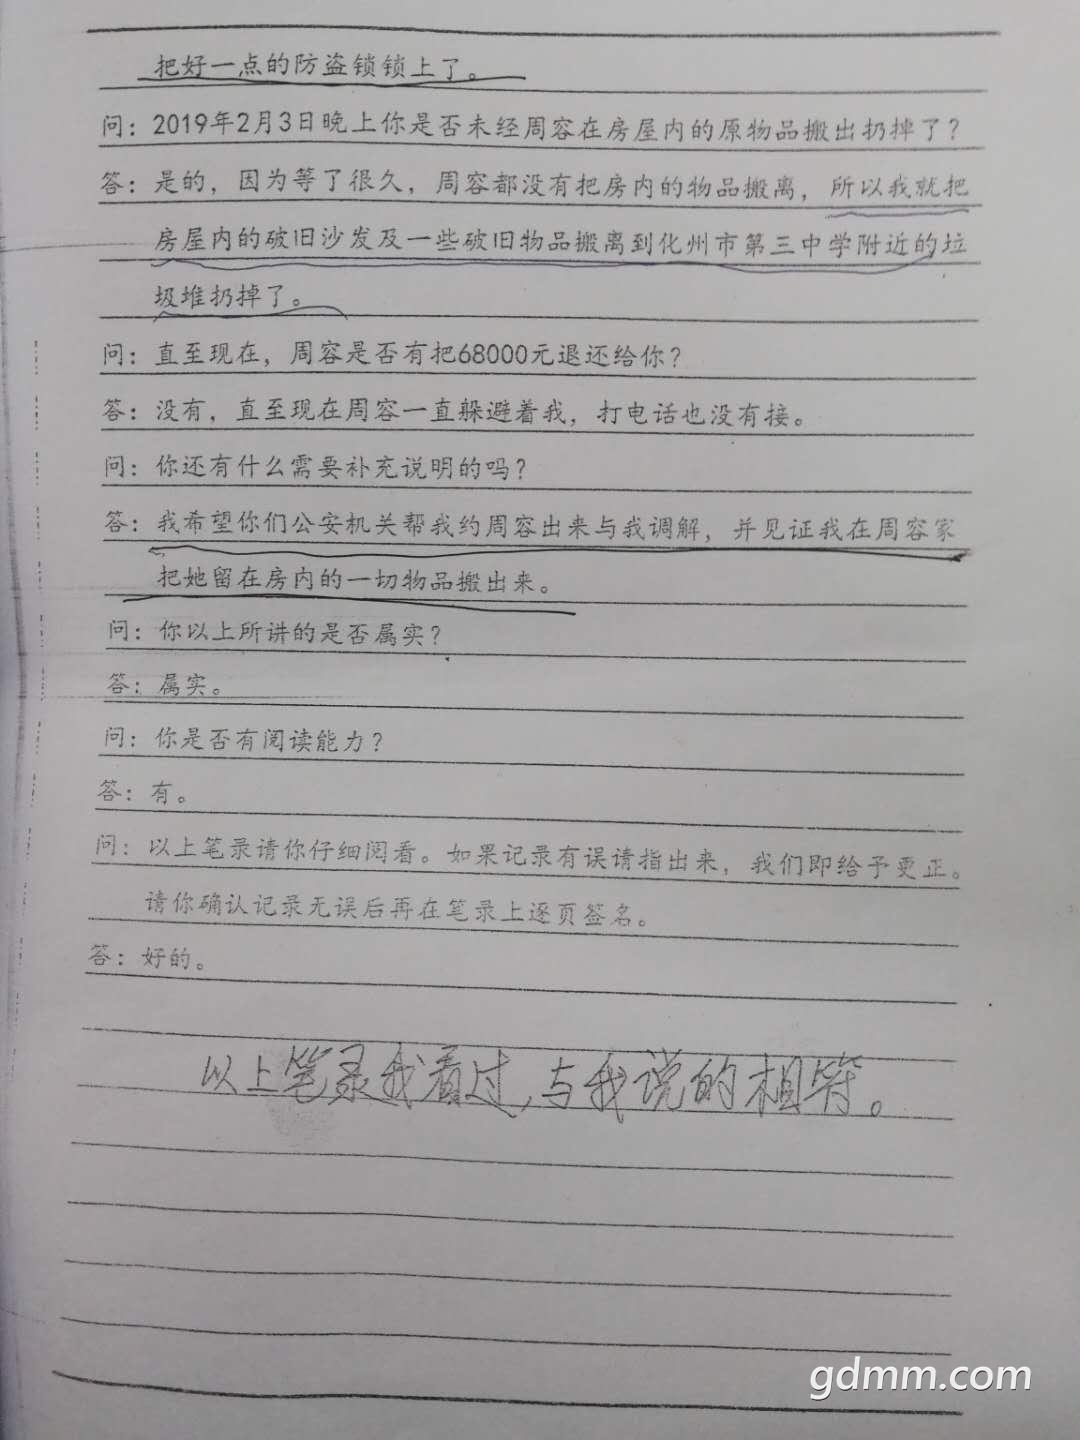 把好一点的防盗锁锁上了。
问：2019年2月3日晚上你是否未经周容在房屋内的原物品搬出扔掉了？
答：是的，因为等了很久，周容都没有把房内的物品搬离，所以我就把
房屋内的破旧沙发及一些破旧物品搬离到化州市第三中学附近的垃
圾堆扔掉了。
问：直至现在，周容是否有把68000元退还给你？
答：没有，直至现在周容一直躲避着我，打电话也没有接。
问：你还有什么需要补充说明的吗？
答：我希望你们公安机关帮我约周容出来与我调解，并见证我在周容家
把她留在房内的一切物品搬出来。
问：你以上所讲的是否属实？
答：属实。
问：你是否有阅读能力？
答：有。
问：以上笔录请你仔细阅看。如果记录有误请指出来，我们即给予更正。
请你确认记录无误后再在笔录上逐页签名。
答：好的。
以上笔录我看过，与我说的相符。
gdmm.com